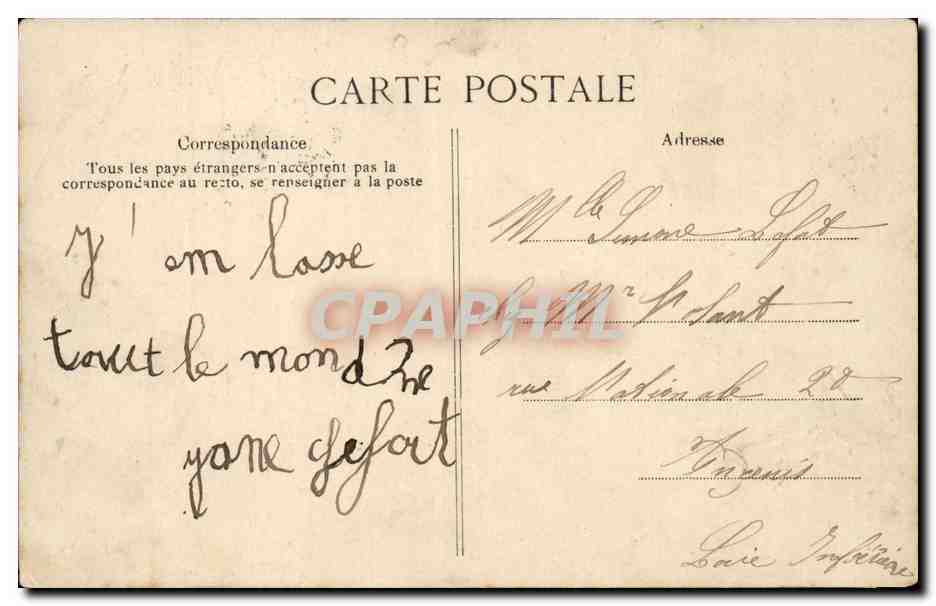 CARTE POSTALE
Correspondance
Tous les pays étrangers n'acceptent pas la
correspondance au recto, se renseigner a la poste
J' em lasse
tout le mond
yane
Adresse
Mlle Simone Lefort
Mr
rue Nationale 20
Ancenis
Loire Inférieure
CPAPHIL